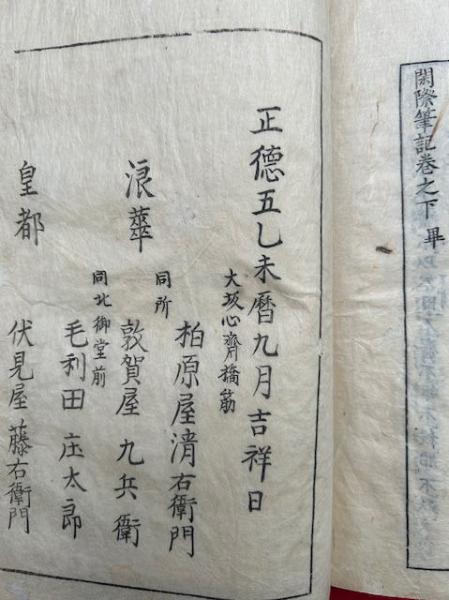 閑際筆記巻之下 畢
正德五乙未曆九月吉祥日
大坂心齋橋筋
柏原屋淸右衛門
同所
浪華
敦賀屋九兵衛
同北御堂前
毛利田庄太郎
皇都
伏見屋藤右衛門